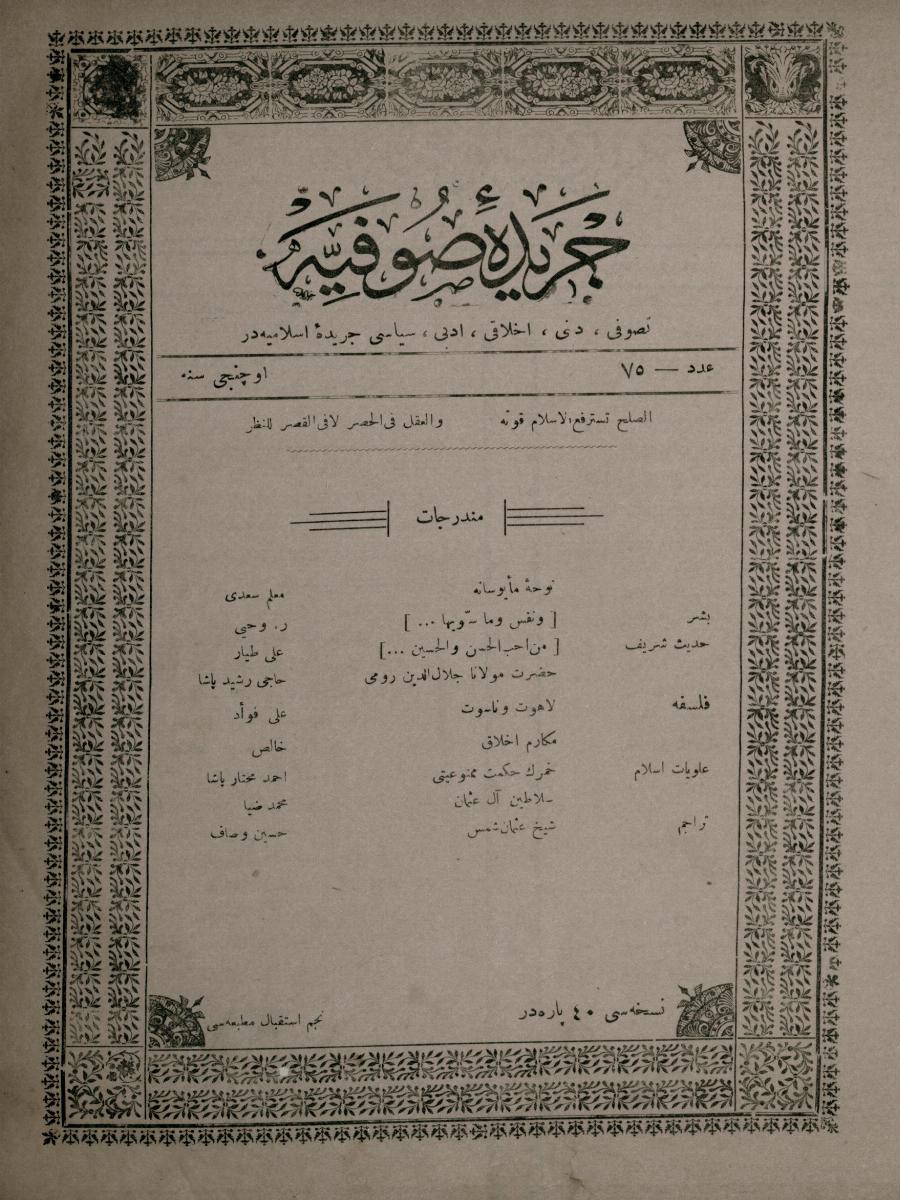 جريدۀ صُوفيّه
تصوفى ، دنى ، اخلاقى ، ادبى ، سياسى جريدۀ اسلاميه‌در
عدد — ٧٥ اوچنجى سنه
الصلح تسترفع الاسلام قوته والعقل فى الحصر لافى القصر للنظر
مندرجات
نوحۀ مأيوسانه معلم سعدى
بشر [ ونفس وما سوّيها ... ] ر. وحيى
حديث شريف [ من احب الحسن والحسين ... ] على طيار
حضرت مولانا جلال‌الدين رومى حاجى رشيد پاشا
فلسفه لاهوت وناسوت على فوأد
مكارم اخلاق خالص
علويات اسلام خمرك حكمت ممنوعيتى احمد مختار پاشا
سلاطين آل عثمان محمد ضيا
تراجم شيخ عثمان شمس حسين وصاف
نسخه‌سى ٤٠ پاره‌در نجم استقبال مطبعه‌سى